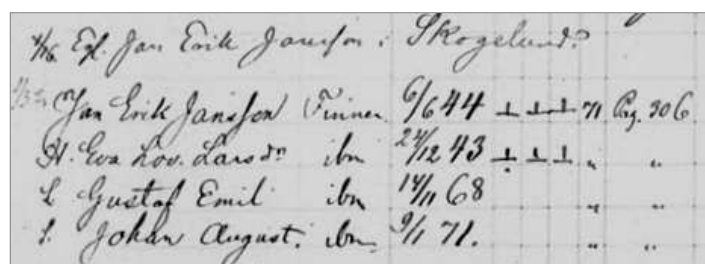 Egl. Jan Erik Jansson i Skogelund
Jan Erik Jansson Finner. 6/6 44 71 Pag. 306
H. Eva Lov. Larsdn ibm 24/12 43 " "
S. Gustaf Emil ibm 14/11 68 " "
S. Johan August. ibm 9/1 71. " "